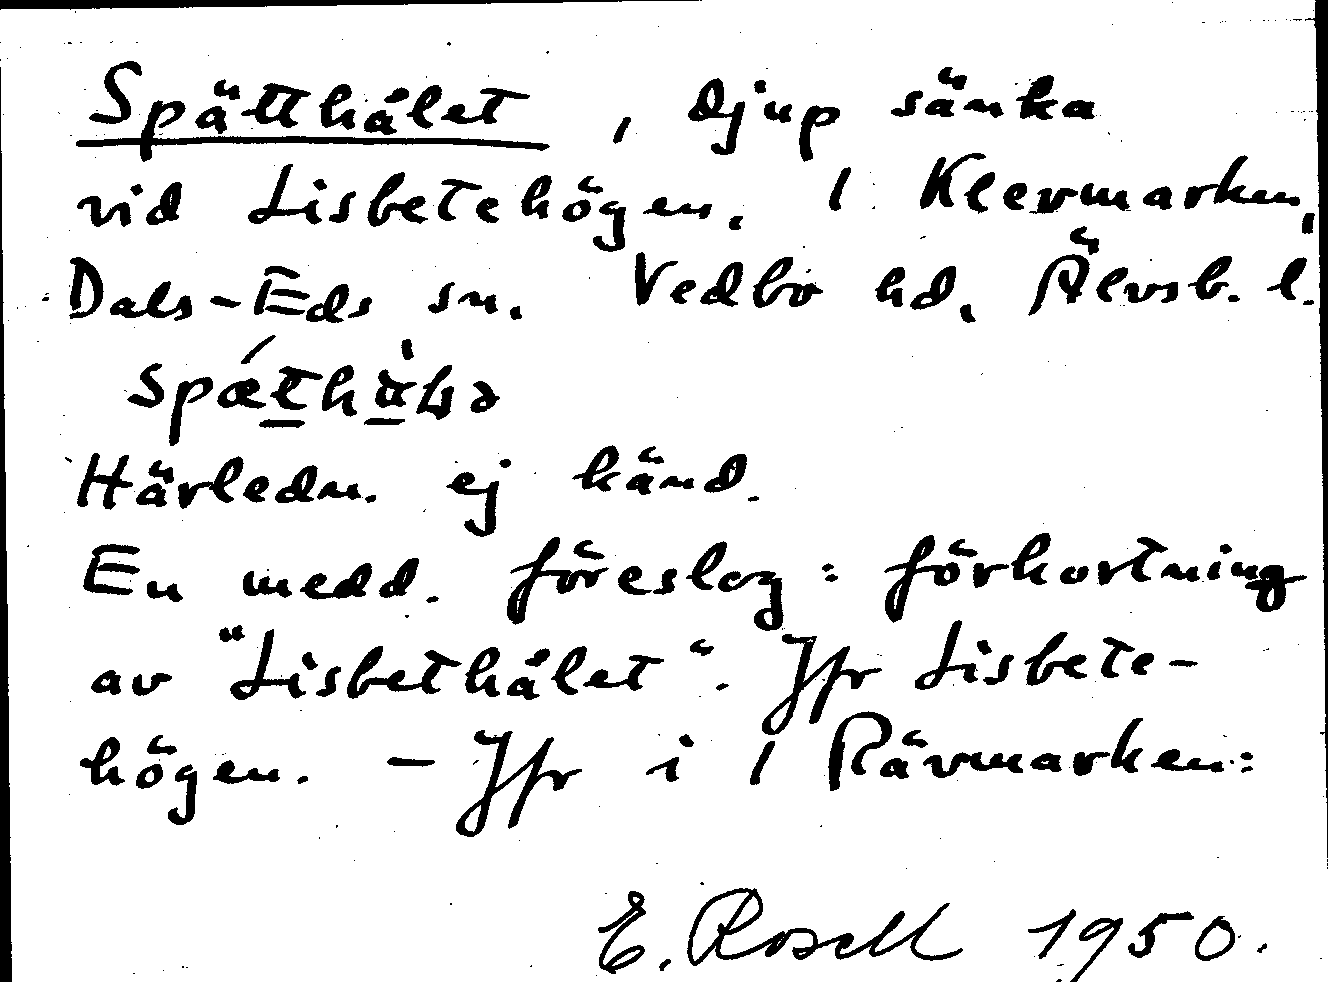 Spätthålet, djup sänka
vid Lisbetehögen. 1 Klevmarken,
Dals-Eds sn. Vedbo hd. Älvsb. l.
Härledn. ej känd.
En medd. föreslog: förkortning
av "Lisbethålet". Jfr Lisbete-
högen. - Jfr i 1 Rävmarken:
E. Rosell 1950.